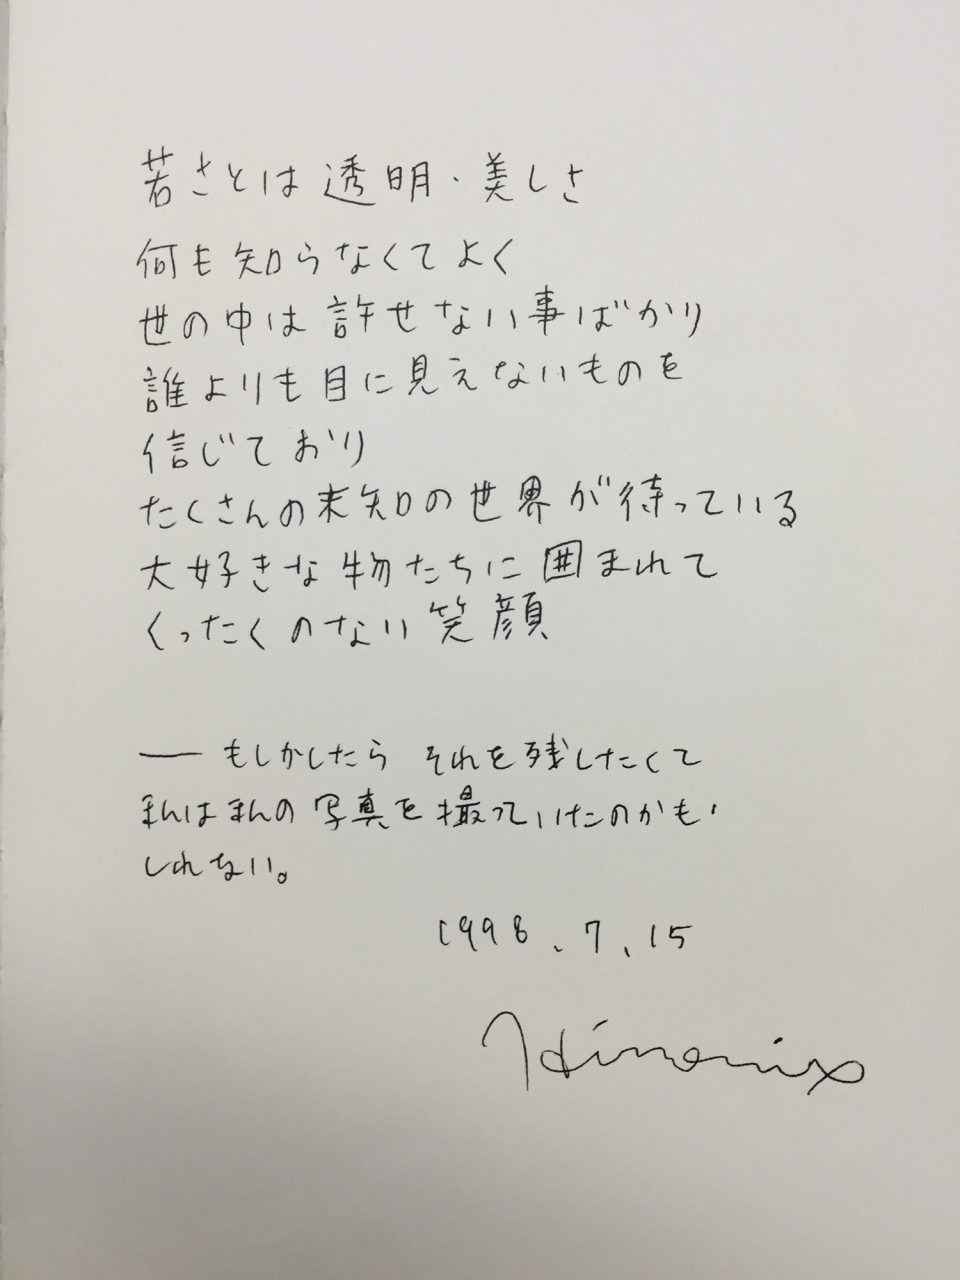 若さとは 透明・美しさ
何も知らなくてよく
世の中は許せない事ばかり
誰よりも目に見えないものを
信じており
たくさんの未知の世界が待っている
大好きな物たちに囲まれて
くったくのない笑顔
── もしかしたら それを残したくて
まんはまんの写真を撮っていたのかも
しれない。
1998.7.15
Hiromix